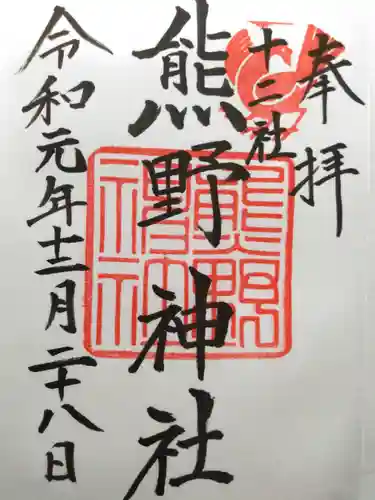 奉拝
十二社
熊野神社
令和元年十二月二十八日